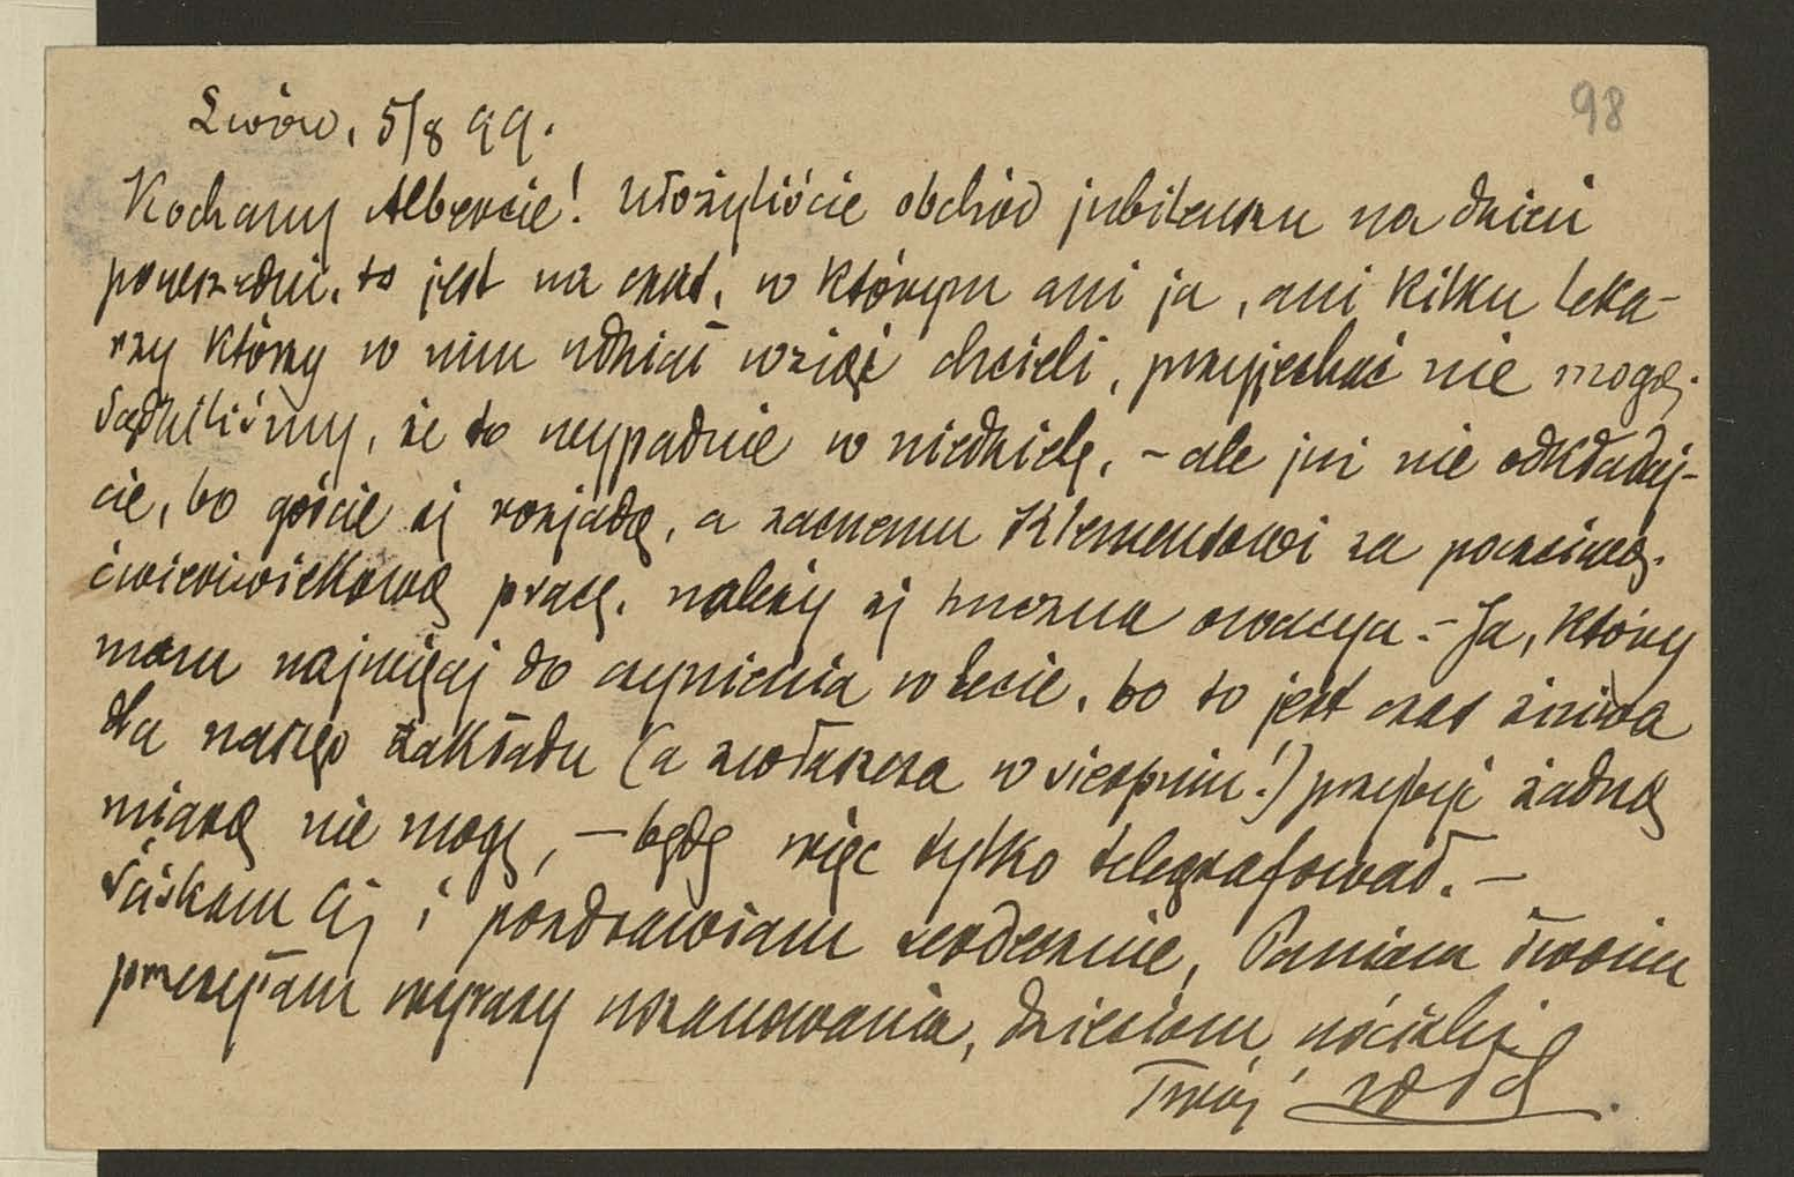 Lwów, 5/8 99.
98
Kochany Albercie! Ułożyliście obchód jubileuszu na dzień
powszedni, to jest na czas, w którym ani ja, ani kilku leka-
rzy którzy w nim udział wziąć chcieli, przyjechać nie mogą.
Sądziliśmy, że to wypadnie w niedzielę, – ale już nie odkładaj-
cie, bo goście się rozjadą, a zacnemu Klementowi za poczciwą
ćwierćwiekową pracę, należy się owacya. – Ja, który
mam najwięcej do czynienia w lecie, bo to jest czas żniwa
dla naszego zakładu (a zwłaszcza w sierpniu!) przybyć żadną
miarą nie mogę, – będę więc tylko telegrafował. –
Ściskam Cię i pozdrawiam serdecznie, Paniom Twoim
przesyłam wyrazy uszanowania, dzieciom uściski
Twój